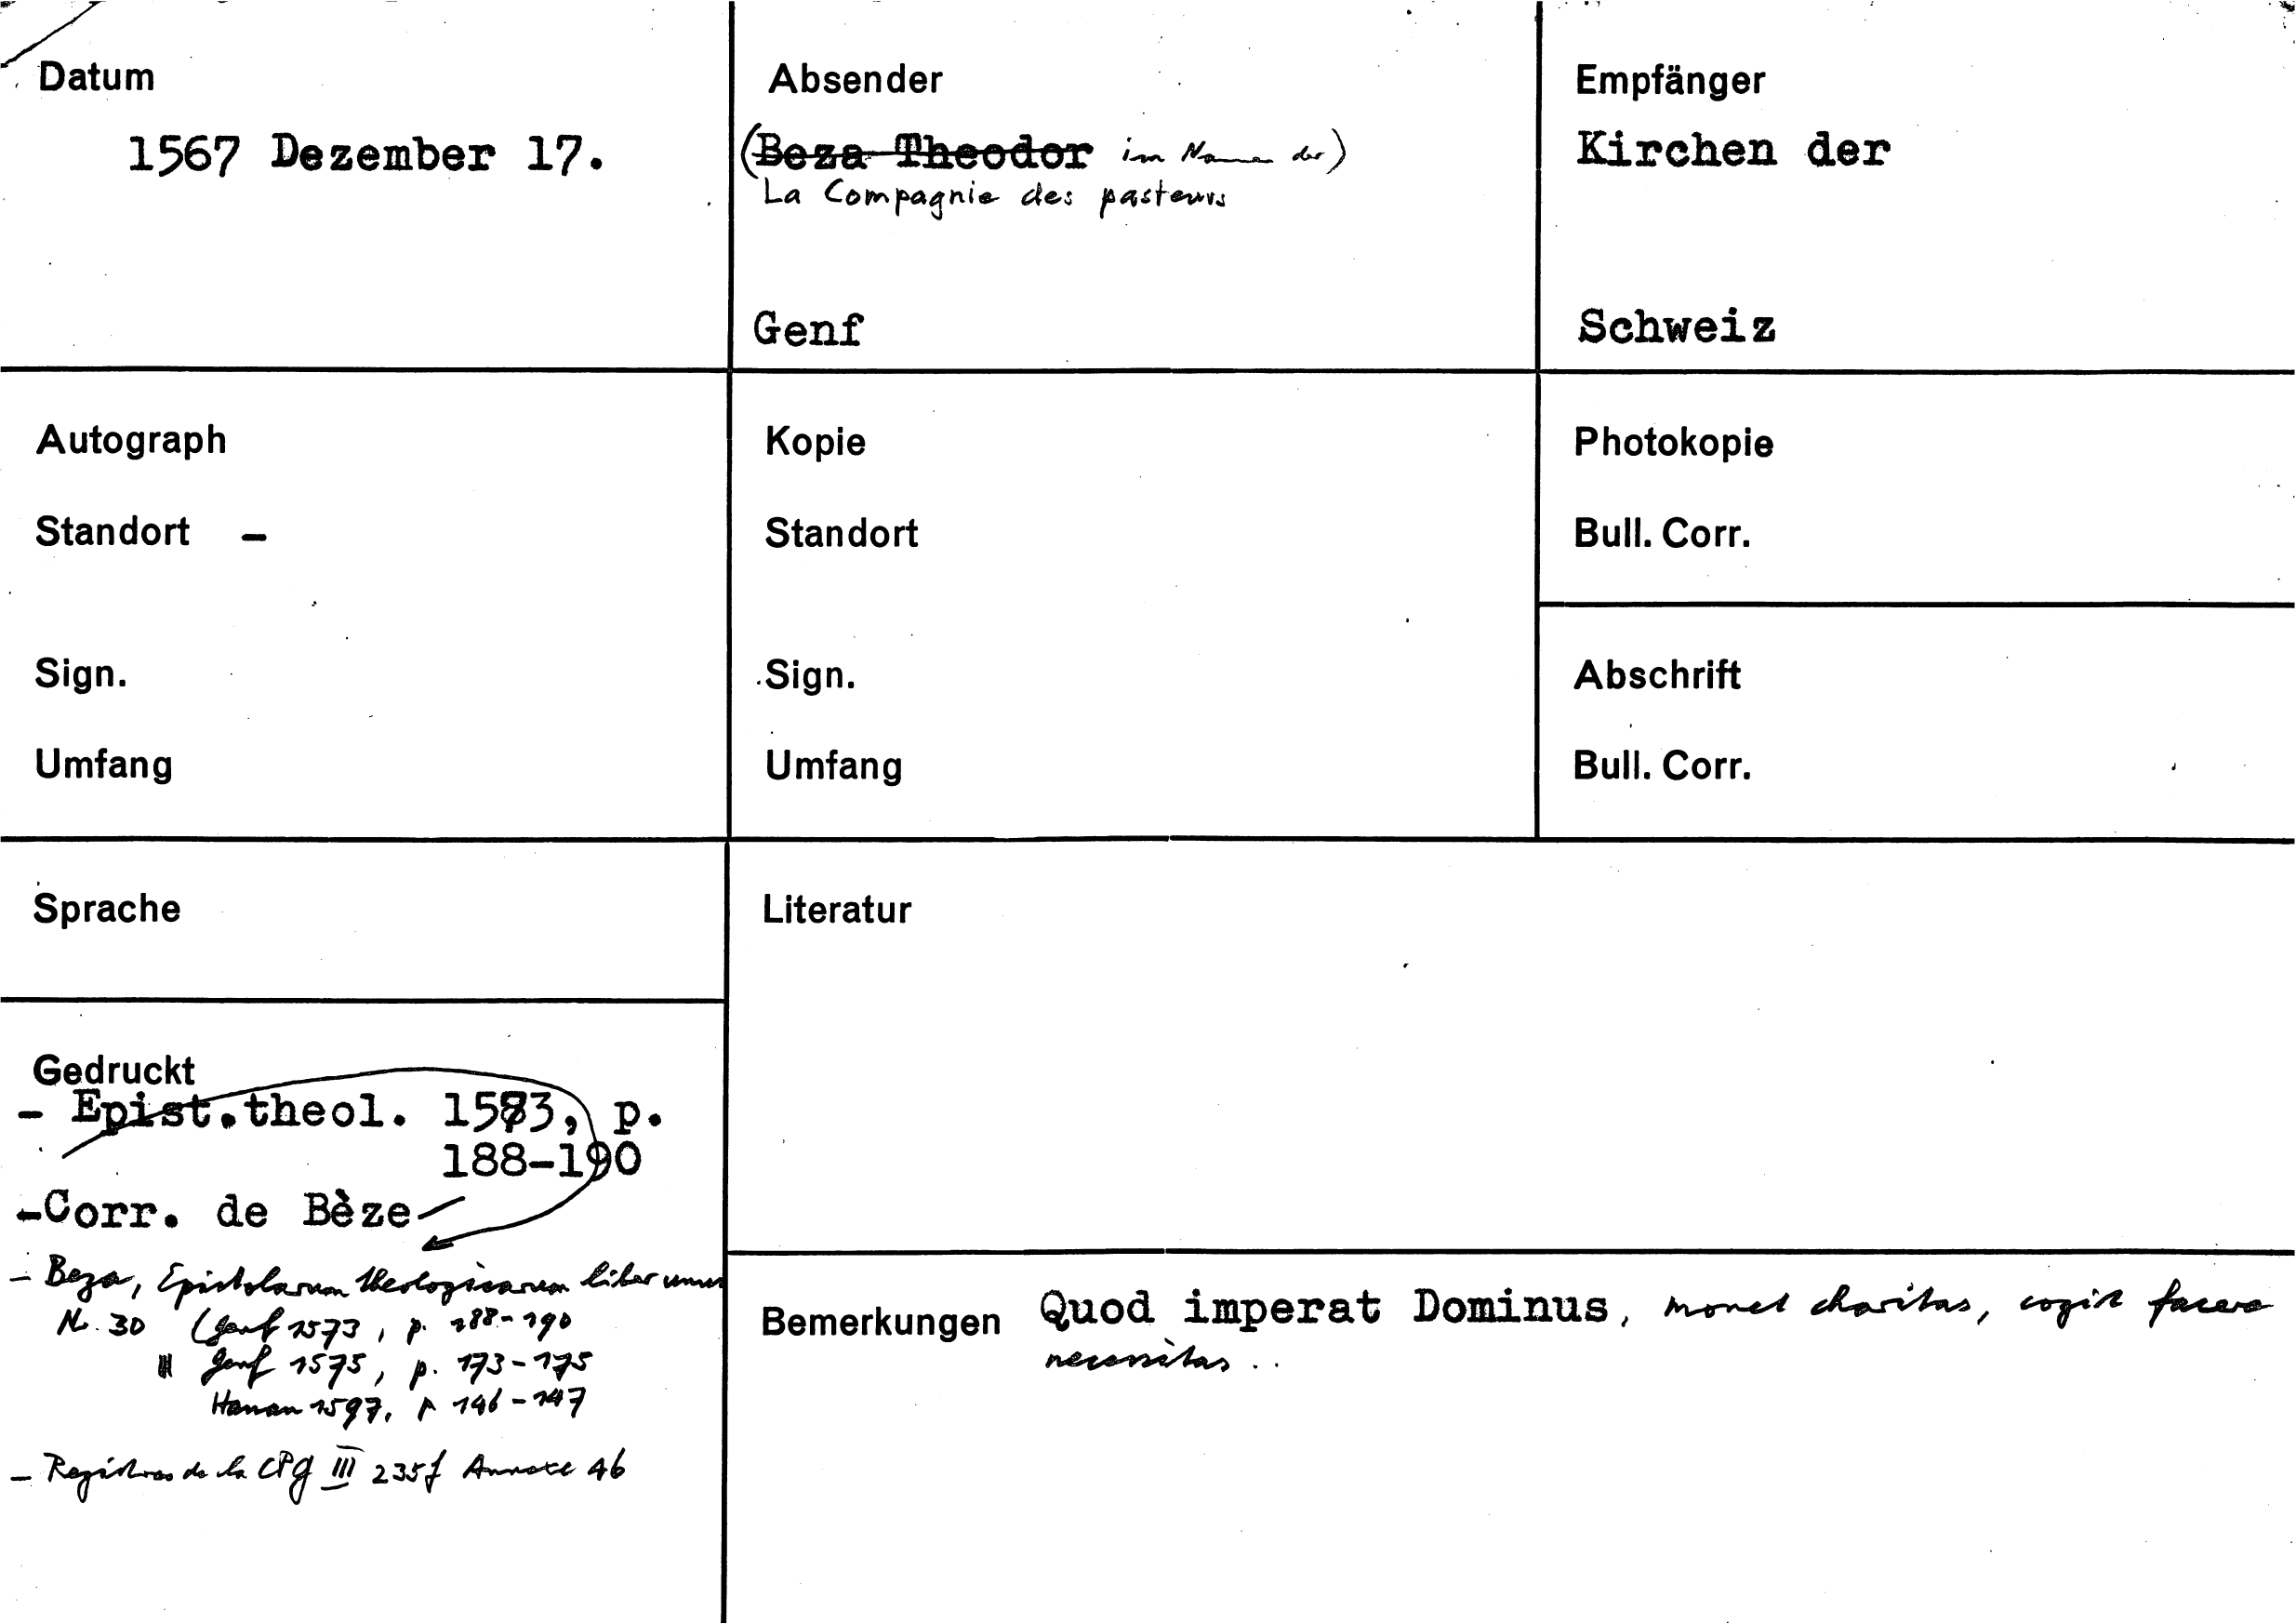 Datum
1567 Dezember 17.
Absender
(Beza Theodor im Namen der)
La Compagnie des pasteurs
Genf
Empfänger
Kirchen der
Schweiz
Autograph
Standort –
Sign.
Umfang
Kopie
Standort
Sign.
Umfang
Photokopie
Bull. Corr.
Abschrift
Bull. Corr.
Sprache
Literatur
Gedruckt
- Epist.theol. 1573, p.
188-190
-Corr. de Bèze
- Beza, Epistolarum theologicarum liber unus
N. 30 (Genf 1573, p. 188-190
Genf 1575, p. 173-175
Hanau 1597, p 146-147
- Registres de la CPG III 235f Annexe 46
Bemerkungen Quod imperat Dominus, monet charitas, cogit facere
necessitas ..